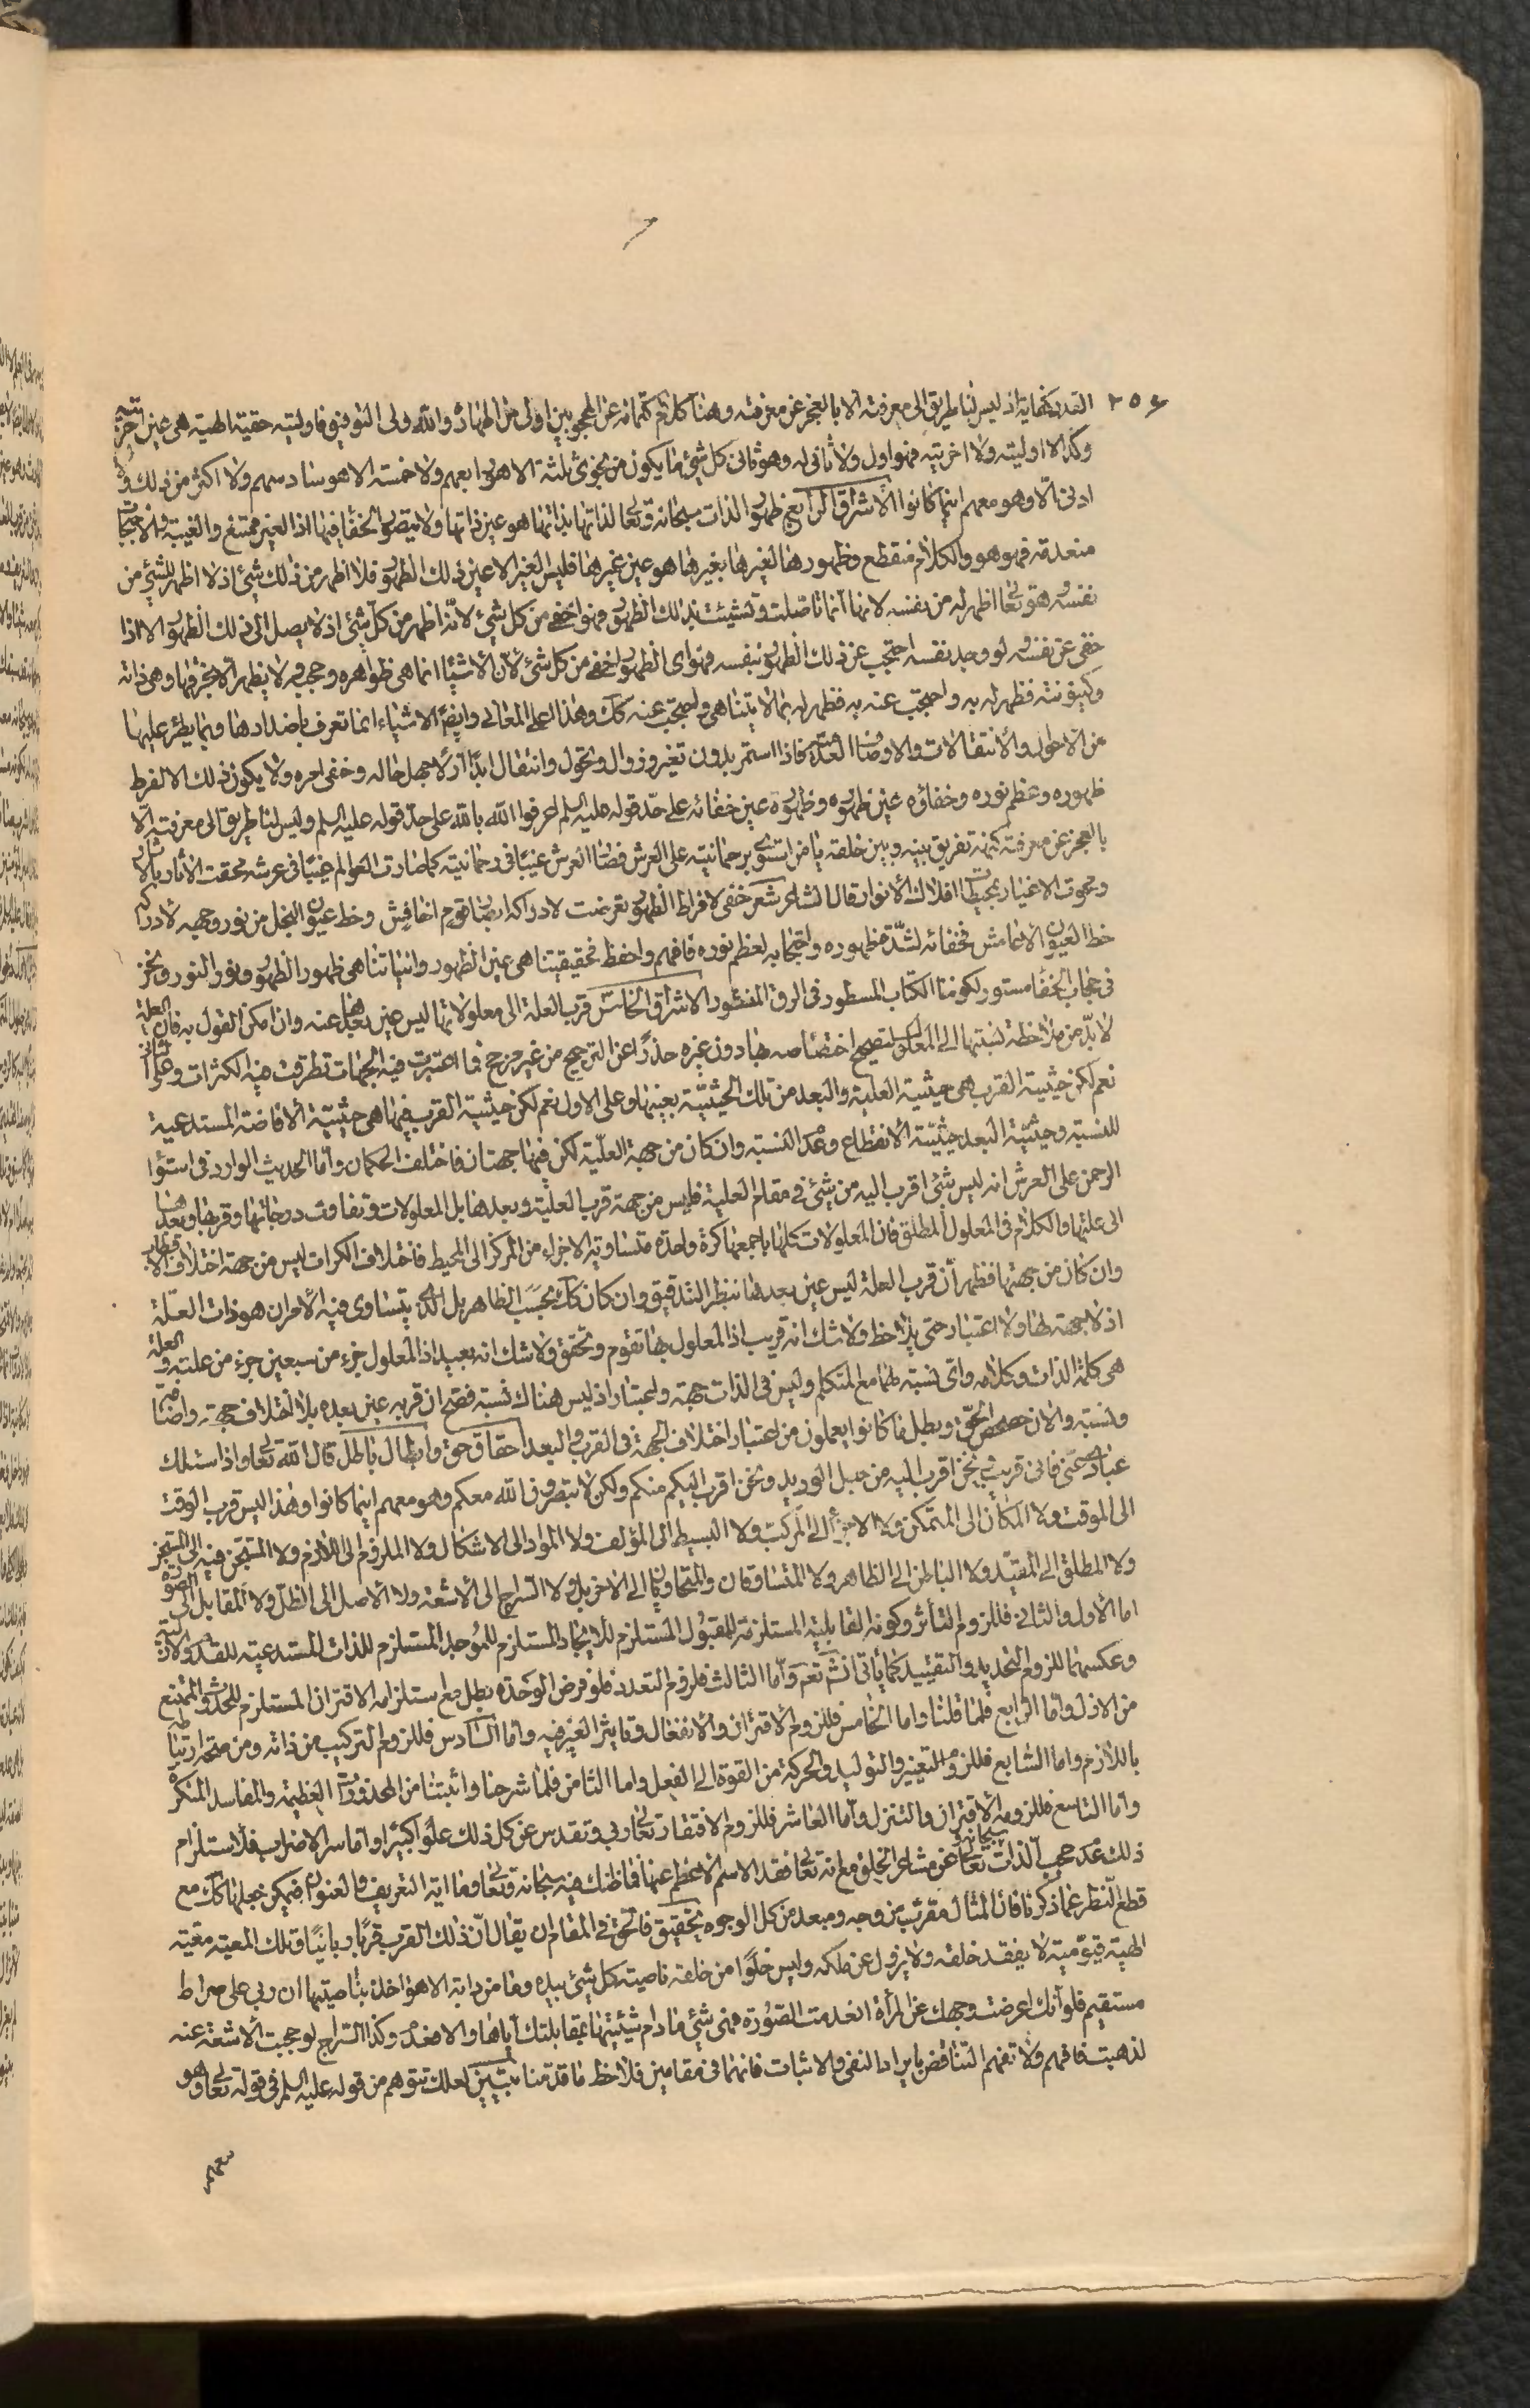 ٢٥٤
القدر كفاية اذ ليس لنا طريق الى معرفته الا بالعجز عن معرفته وهنا كلام كتمانه عن المحجوبين اولى من اظهاره والله ولى التوفيق فاوليته حقيقة الهية هى عين اخريته
وكذا لا اوليته ولا اخريته فهو اول ولا ثانى له وهو ثانى كل شئ ما يكون من نجوى ثلثة الا هو رابعهم ولا خمسة الا هو سادسهم ولا اكثر من ذلك ولا
ادنى الا وهو معهم اينما كانوا الاشراق الرابع ظهور الذات سبحانه وتعالى لذاتها بذاتها هو عين ذاتها ولا يتصور الخفا فيها اذ الغير ممتنع والغيبة والاحتجاب
منعدمة فهو هو والكلام منقطع وظهورها لغيرها بغيرها هو عين غيرها فليس الغير الا عين ذلك الظهور فلا اظهر من ذلك شئ اذ لا اظهر للشئ من
نفسه فهو تعالى اظهر له من نفسه لانها انما تاصلت وتشيئت بذلك الظهور فهو اخفى من كل شئ لانه اظهر من كل شئ اذ لا يصل الى ذلك الظهور الا اذا
خفى عن نفسه لو وجد نفسه احتجب عن ذلك الظهور بنفسه فهو اى الظهور اخفى من كل شئ لان الاشياء انما هى ظواهره وحجبه لا يظهر الا بخرقها وهى ذاته
وكينونته فظهر له به واحتجب عنه به فظهر له بما لا يتناهى واحتجب عنه كك وهذا اعلى المعانى وايضا الاشياء انما تعرف باضدادها وبما يطرء عليها
من الاحوال والانتقالات والاوضاع المتعددة فاذا استمر بدون تغير وزوال وتحول وانتقال ابدا ازلا جهل حاله وخفى امره ولا يكون ذلك الا لفرط
ظهوره وعظم نوره وخفاؤه عين ظهوره وظهوره عين خفائه على حد قوله عليه السلم اعرفوا الله بالله على حد قوله عليه السلم وليس لنا طريق الى معرفته الا
بالعجز عن معرفته كنهه تفريق بينه وبين خلقه يا من استوى برحمانيته على العرش فصار العرش غيبا فى رحمانيته كما صارت العوالم غيبا فى عرشه محقت الاثار بالاثار
ومحوت الاغيار بمحيطات افلاك الانوار قال الشاعر شعر خفى لافراط الظهور تعرضت لادراكه ابصار قوم اخافش وحظ عيون النجل من نور وجهه لادراكه
حظ العيون الاعامش فخفائه لشدة ظهوره واحتجابه لعظم نوره فافهم واحفظ فحقيقتنا هى عين الظهور وانياتنا هى ظهور الظهور ونور النور ونحن
فى حجاب الخفا مستور لكوننا الكتاب المسطور فى الرق المنشور الاشراق الخامس قرب العلة الى معلولاتها ليس عين بعدها عنه وان امكن القول به فان العلة
لا بد من ملاحظة نسبتها الى المعلول لتصحيح اختصاصه بها دون غيره حذرا عن الترجيح من غير مرجح فما اعتبرت فيه الجهات تطرقت فيه الكثرات
نعم لكن حيثية القرب هى حيثية العلية والبعد من تلك الحيثية بعينها وعلى الاول نعم لكن حيثية القرب فيها هى حيثية الافاضة المستدعية
للنسبة وحيثية البعد حيثية الانقطاع وعدم النسبة وان كان من جهة العلية لكن فيها جهتان فاختلف الحكمان واما الحديث الوارد فى استواء
الرحمن على العرش انه ليس شئ اقرب اليه من شئ فى مقام العلية فليس من جهة قرب العلية وبعدها بل المعلولات وتفاوت درجاتها وقربها وبعدها
الى علتها والكلام فى المعلول المطلق فان المعلولات كلها باجمعها كرة واحدة متساوية الاجزاء من المركز الى المحيط فاختلاف الكرات ليس من جهة اختلاف
وان كان من جهتها فظهر ان قرب العلة ليس عين بعدها بنظر التدقيق وان كان كك بحسب الظاهر بل الذى يتساوى فيه الامران هو ذات العلة
اذ لا جهة لها ولا اعتبار حتى يلاحظ ولا شك انه قريب اذ المعلول بها تقوم وتحقق ولا شك انه بعيد اذ المعلول جزء من سبعين جزء من علته والعلة
هى كلمة الذات وكلامه واى نسبة لها مع المتكلم وليس فى الذات جهة واعتبار اذ ليس هناك نسبة فصح ان قربه عين بعده بلا اختلاف جهة واضافة
ونسبة والان حصحص الحق وبطل ما كانوا يعملون من اعتبار اختلاف الجهة فى القرب والبعد احقاق حق وابطال باطل قال الله تعالى واذا سئلك
عبادى عنى فانى قريب ونحن اقرب اليه من حبل الوريد ونحن اقرب اليكم منكم ولكن لا تبصرون الله معكم وهو معهم اينما كانوا وهذا ليس قرب الوقت
الى الموقت ولا المكان الى المتمكن ولا الاجزاء الى المركب ولا البسيط الى المؤلف ولا المواد الى الاشكال ولا الملزوم الى اللازم ولا المستجن فيه الى المستجن
ولا المطلق الى المقيد ولا الباطن الى الظاهر ولا المتساوقان والمتحاويان الى الاخر بل ولا السراج الى الاشعة ولا الاصل الى الظل ولا المقابل الى الصورة
اما الاول والثانى فللزوم التأثر وكونه القابلية المستلزمة للمقبول المستلزم للايجاد المستلزم للموجد المستلزم للذات المستدعية للقدم
وعكسهما للزوم التحديد والتقييد كما يأتى انشاء الله تعالى واما الثالث فلزوم التعدد فلو فرض الوحدة بطل مع استلزامه الاقتران المستلزم للحدث الممتنع
من الازل واما الرابع فلما قلنا واما الخامس فللزوم الاقتران والانفعال وتاثير الغير فيه واما السادس فللزوم التركيب من ذاته ومن جهة ارتباطه
باللازم واما السابع فللزوم التغيير والتوليد والحركة من القوة الى الفعل واما الثامن فلما شرحنا واثبتنا من المحذورات العظيمة والمفاسد المنكرة
واما التاسع فللزومه الاقتران والتنزل واما العاشر فللزوم الافتقار تعالى ربى وتقدس عن كل ذلك علوا كبيرا واما سر الاضراب فلاستلزام
ذلك عدم حجب الذات سبحانه وتعالى عن مشاعر الخلق مع انه تعالى فقد الاسم الاعظم عنها فما ظنك فيه سبحانه وتعالى واما اية التعريف والعنوان فيمكن جعلها كك مع
قطع النظر عما ذكرنا فان المثال مقرب من وجه ومبعد من كل الوجوه تحقيق فالحق فى المقام ان يقال ان ذلك القرب قربا ربانيا وتلك المعية معية
الهية قيومية لا يفقد خلقه ولا يزول عن ملكه وليس خلوا من خلقه ناصية كل شئ بيده وما من دابة الا هو اخذ بناصيتها ان ربى على صراط
مستقيم فلو انك اعرضت وجهك عن المرآة انعدمت الصورة فهى شئ ما دام شيئيتها بمقابلتك اياها والا فعدم وكذا السراج لو حجبت الاشعة عنه
لذهبت فافهم ولا تفهم التناقض بايراد النفى والاثبات فانهما فى مقامين فلاحظ ما قدمنا تبيين لعلك تتوهم من قوله عليه السلم فى قوله تعالى وهو
معهم